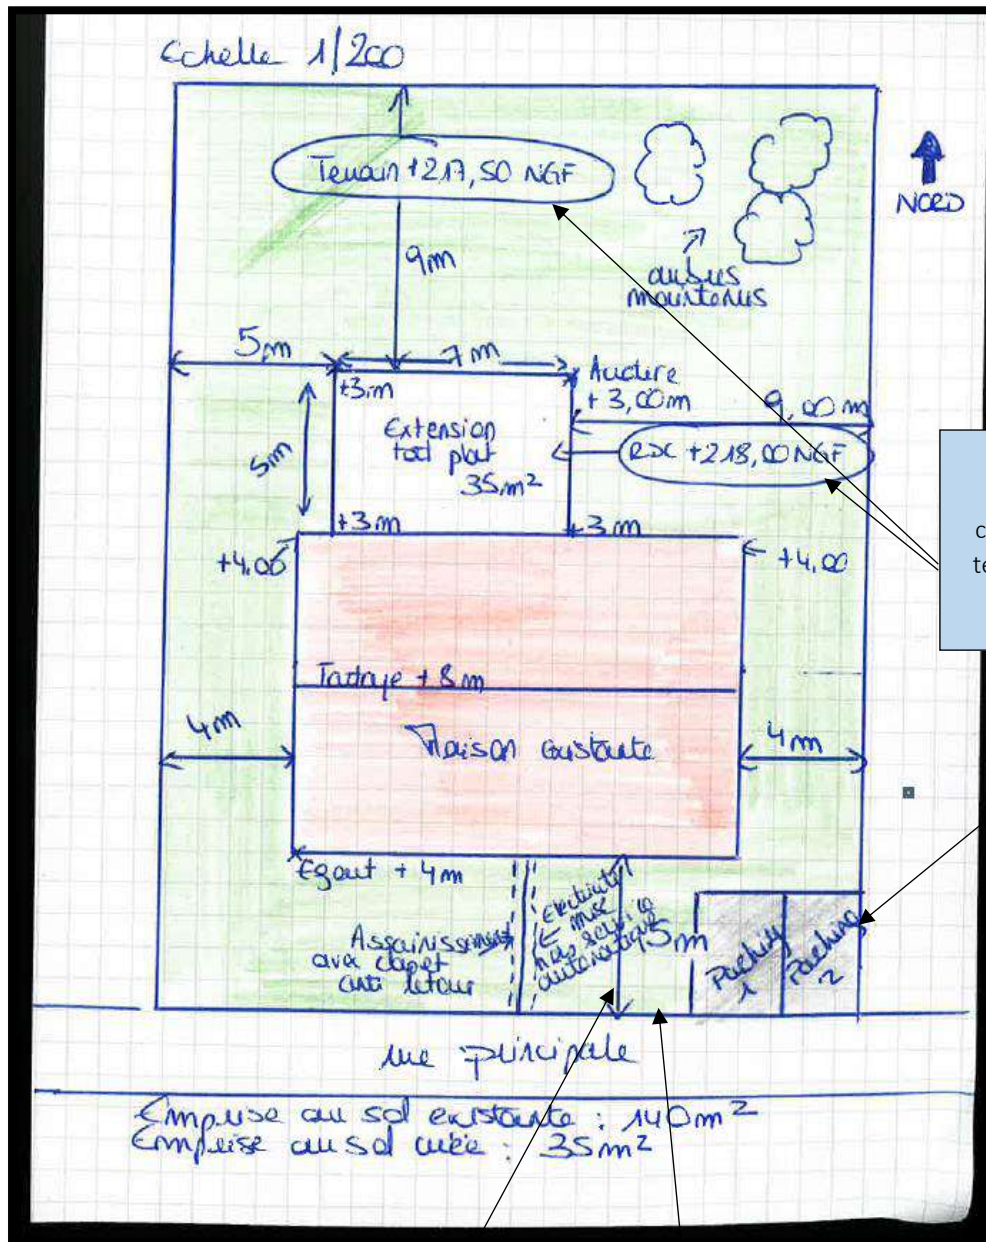 Echelle 1/200
Terrain +217,50 NGF
NORD
9m
arbres
maintenus
5m
7m
+3m
Acrotère
+ 3,00m
9,00 m
5m
Extension
toit plat
35m²
RDC +218,00 NGF
+3m
+3m
+4.00
+4,00
c
te
Faitage + 8m
4m
Maison existante
4m
Egout + 4m
Assainissement
avec clapet
anti retour
Electricité
mise
hors service
automatique
5m
Parking
1
Parking
2
rue principale
Emprise au sol existante : 140m²
Emprise au sol créée : 35m²